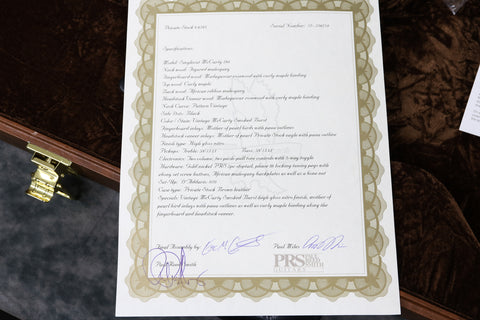 Private Stock #
Serial Number:
Specifications:
Model: Singlecut McCarty 594
Neck wood: Figured mahogany
Fingerboard wood: Madagascar rosewood with curly maple binding
Top wood: Curly maple
Back wood: African ribbon mahogany
Headstock Veneer wood: Madagascar rosewood with curly maple binding
Neck Carve: Pattern Vintage
Side Dots: Black
Color / Stain: Vintage McCarty Smoked Burst
Fingerboard inlays: Mother of pearl birds with paua outlines
Headstock veneer inlays: Mother of pearl Private Stock eagle with paua outline
Finish type: High gloss nitro
Pickups: Treble: 58/15 LT Bass: 58/15 LT
Electronics: Two volume, two push pull tone controls with 3-way toggle
Hardware: Gold nickel PRS two
phase locking tuning pegs with
along set screw buttons, African mahogany backplates as well as a bone nut
Case type: Private Stock Brown leather
Specials: Vintage McCarty Smoked Burst high gloss nitro finish, mother of
pearl bird inlays with paua outlines as well as curly maple binding along the
fingerboard and headstock veneer.
Final Assembly by:
Paul Miles
Paul Reed Smith
PRS PAUL REED SMITH
GUITARS